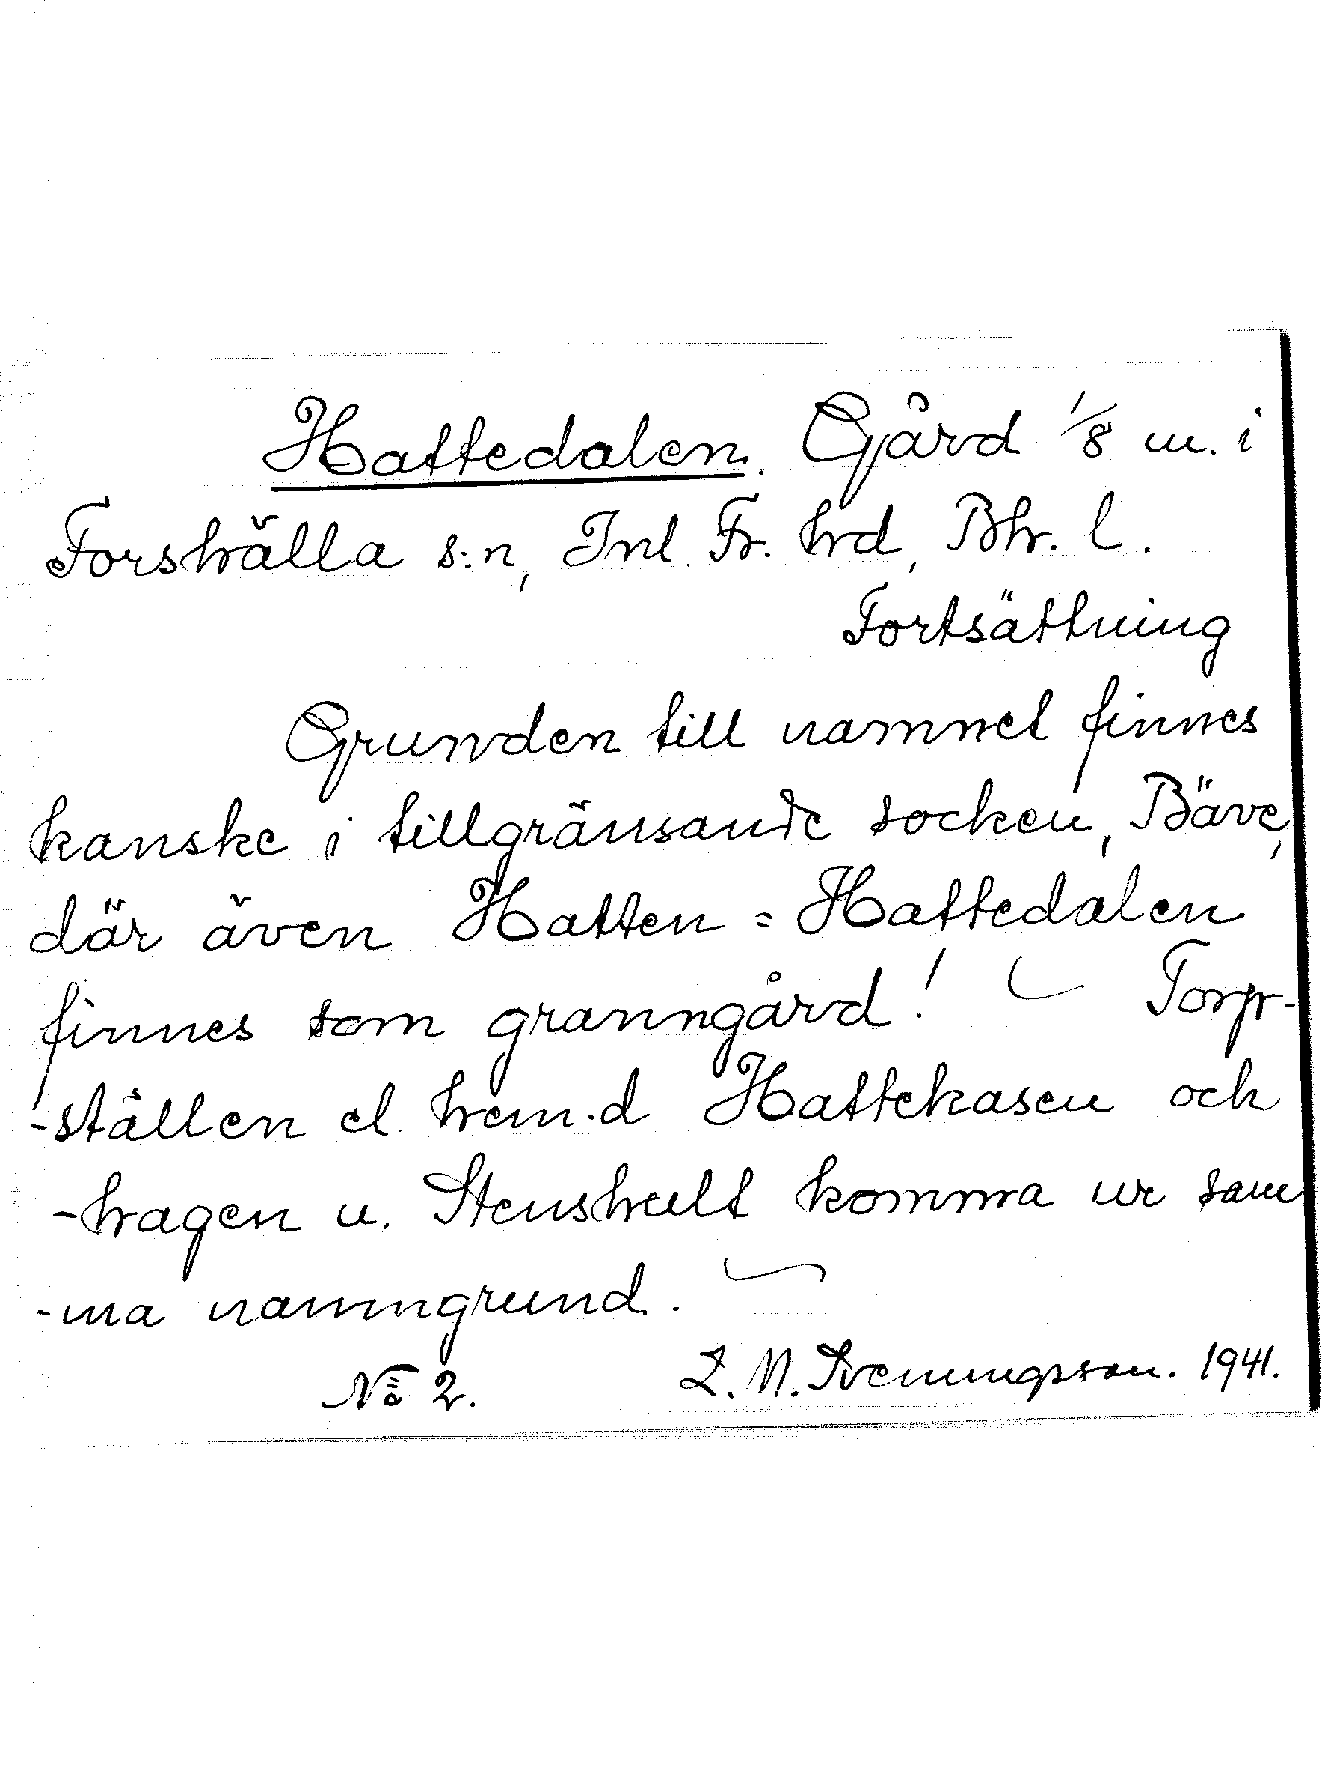 Hattedalen. Gård 1/8 m. i
Forshälla s:n, Inl. Fr. hrd, Bhr. l.
Fortsättning
Grunden till namnet finnes
kanske i tillgränsande socken, Bäve,
där även Hatten = Hattedalen
finnes som granngård! Torp-
-ställen el. hem.d Hattekasen och
-hagen u. Stenshult komma ur sam
-ma namngrund.
No 2. L. M. Svenungsson. 1941.